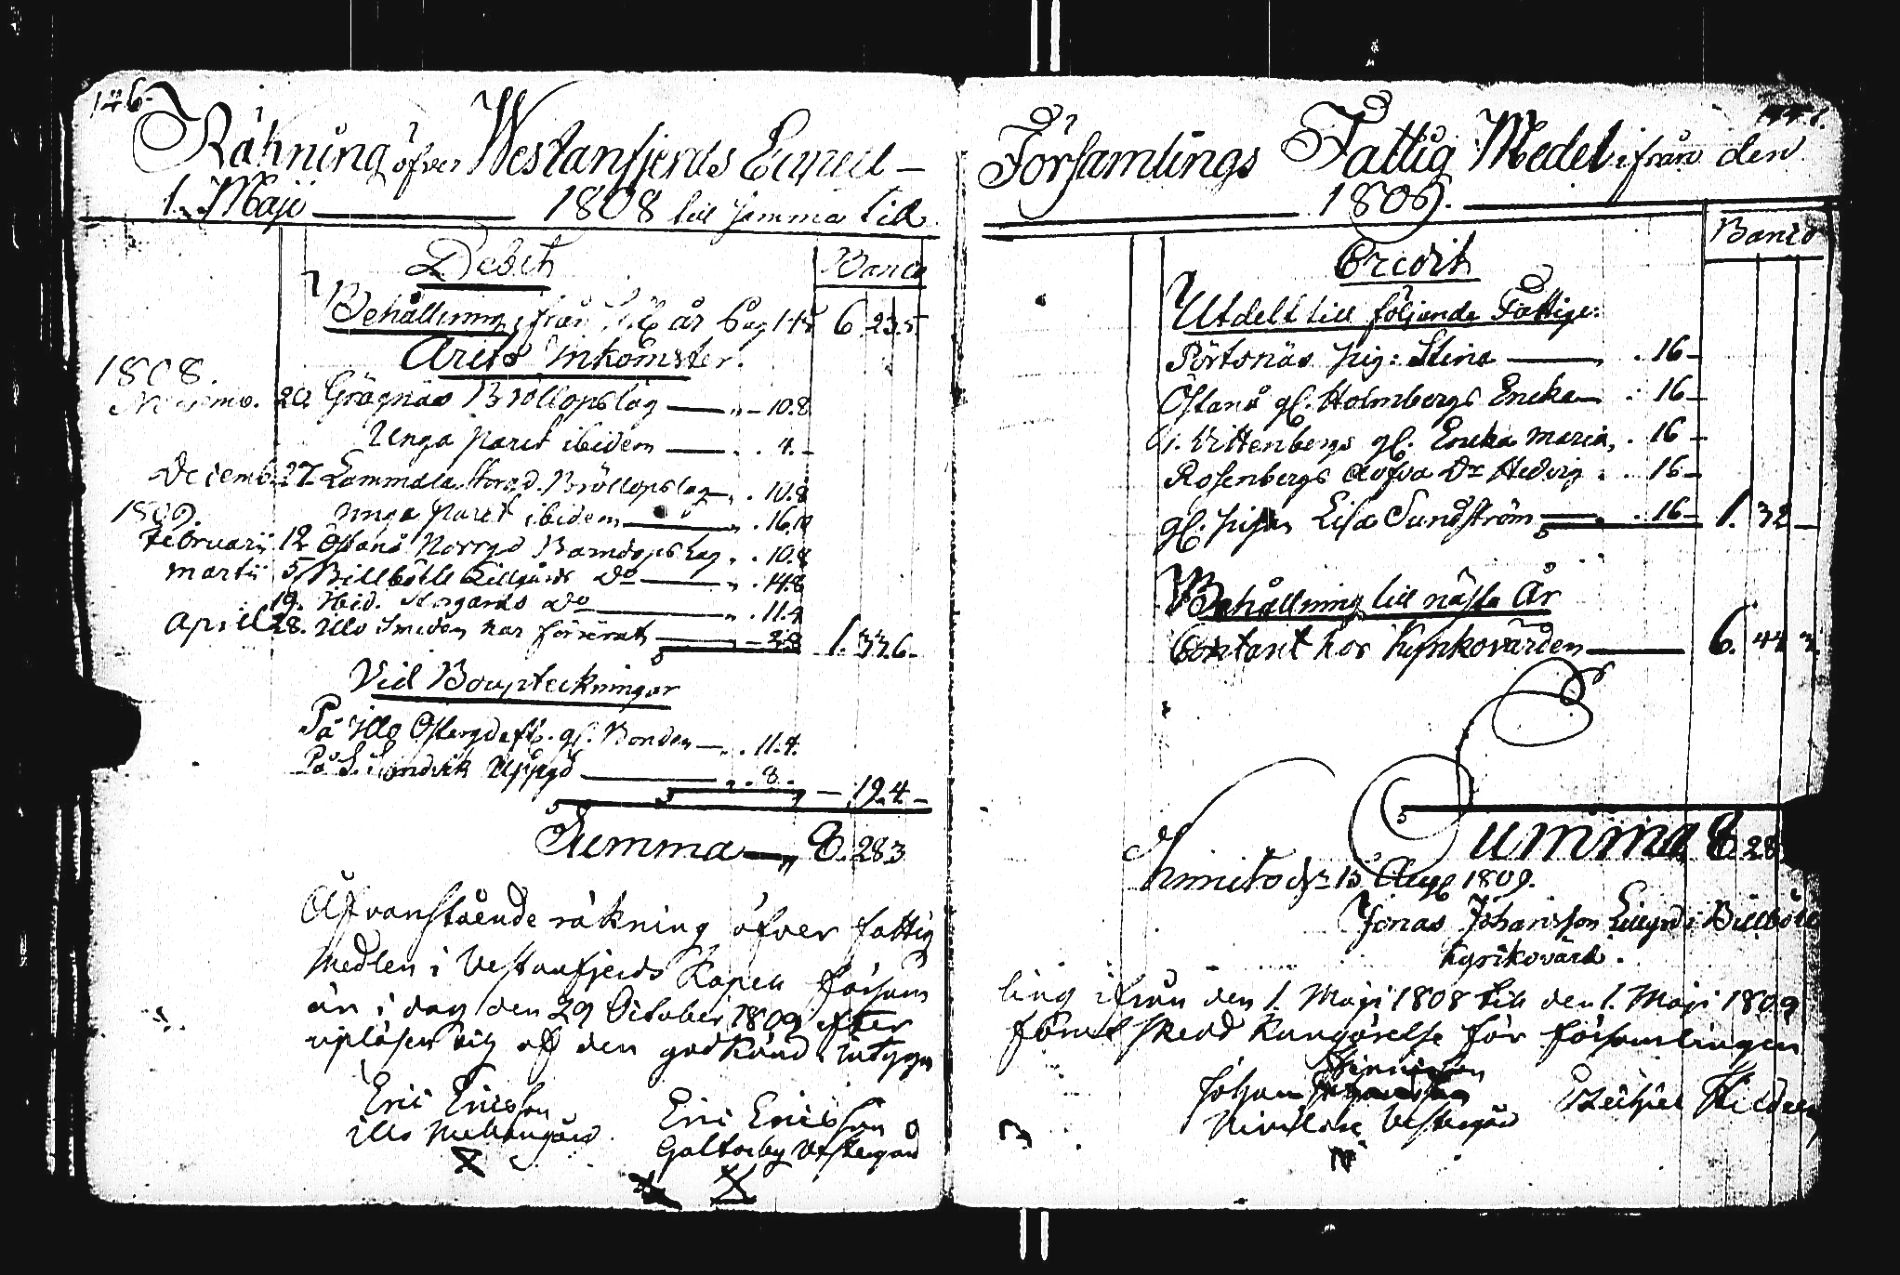 146.
Räkning öfver Westanfjerds Capell –
1. Maji 1808 till samma tid
Debet
Banco
Behållning ifrån år Pag 145 6. 23. 5
Årets Inkomster.
1808.
Novemb. 20 Grägnäs Bröllopslag 10.8
Unga paret ibidem 4.
Decemb. 27. Lammala Storgd. Bröllopslag 10.8
Unga paret ibidem 16.
1809.
Februarii 12 Östanå Norrgd Barndopslag 10.8
Martii 5 Billböle Lillgårds do 14.8
19. Ibid. Storgårds do 11.4
April 28. Illo Smeden har förärat 2.8 1.33.6.
Vid Boupteckningar
På Illo Östergd eft. gl. Bonden 11.4.
På S. Sundvik Uppgd 8. – 19.4 –
Summa 8. 28.3
Ofvanstående räkning öfver fattig
Medlen i Vestanfjerds Kapell försam
än i dag den 29 October 1809 efter
upläsen och af den godkänd, intyga
Eric Ericsson
Illo Mellangård
Eric Ericsson
Galtarby Vestergård
Församlings Fattig Medel ifrån den
1809.
Credit
Banco
Utdelt till följande Fattige:
Pörtsnäs pig: Stina 16 –
Östanå gl. Holmbergs Encka 16 –
Vittenbergs gl. Encka Maria 16 –
Rosenbergs dofva Dr Hedvig 16 –
gl. pigan Lisa Sundström 16 – 1. 32 –
Behållning till nästa År
Contant hos Kyrkovärden 6. 44 3
Summa 8. 28
Kimito d. 15 Aug 1809.
Jonas Johansson Lillgrd i Billböle
Kyrkovärd.
ling ifrån den 1. Maji 1808 till den 1. Maji 1809
förut skedd kungörelse för församlingen
Johan
Nivelax Vestergård
Ezechiel